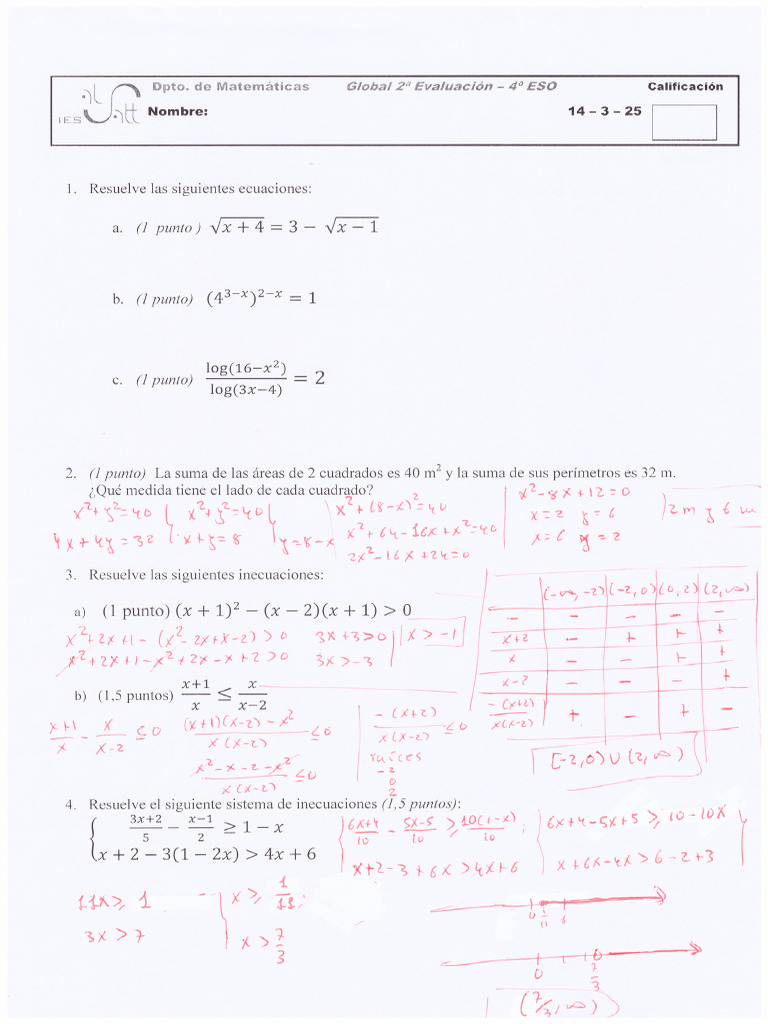 al Satt
IES
Dpto. de Matemáticas Global 2ª Evaluación – 4º ESO Calificación
Nombre: 14 – 3 – 25
1. Resuelve las siguientes ecuaciones:
a. (1 punto ) √(x + 4) = 3 − √(x − 1)
b. (1 punto) (4^(3−x))^(2−x) = 1
c. (1 punto) log(16−x²)/log(3x−4) = 2
2. (1 punto) La suma de las áreas de 2 cuadrados es 40 m² y la suma de sus perímetros es 32 m.
¿Qué medida tiene el lado de cada cuadrado?
x²+y²=40 x²+y²=40 x²+(8-x)²=40 x²-8x+12=0
4x+4y=32 x+y=8 y=8-x x²+64-16x+x²=40 x=2 y=6 2m y 6m
2x²-16x+24=0 x=6 y=2
3. Resuelve las siguientes inecuaciones:
a) (1 punto) (x + 1)² − (x − 2)(x + 1) > 0
x²+2x+1-(x²-2x+x-2)>0 3x+3>0 x>-1
x²+2x+1-x²+2x-x+2>0 3x>-3
(-∞,-2) (-2,0) (0,2) (2,∞)
- - - - -
x+2 - + + +
x - - + +
x-2 - - - +
-(x+2)/x(x-2) + - + -
b) (1,5 puntos) (x+1)/x ≤ x/(x−2)
(x+1)/x - x/(x-2) ≤0 ((x+1)(x-2)-x²)/(x(x-2)) ≤0 -(x+2)/(x(x-2)) ≤0
(x²-x-2-x²)/(x(x-2)) ≤0
raíces
-2
0
2
[-2,0)∪(2,∞)
4. Resuelve el siguiente sistema de inecuaciones (1,5 puntos):
(3x+2)/5 − (x−1)/2 ≥ 1 − x
x + 2 − 3(1 − 2x) > 4x + 6
(6x+4)/10 - (5x-5)/10 ≥ 10(1-x)/10 6x+4-5x+5≥10-10x
x+2-3+6x>4x+6 x+6x-4x>6-2+3
11x≥1 x≥1/11
3x>7 x>7/3
0 1/11 1
0 7/3
(7/3,∞)